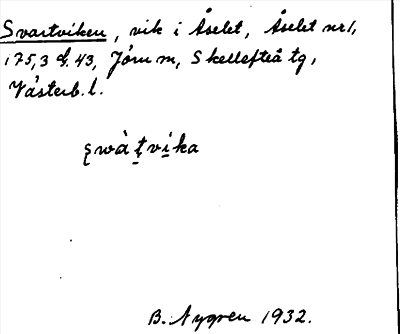 Svartviken, vik i Åselet, Åselet nr 1,
175,3 d. 43, Jörn m, Skellefteå tg,
Västerb. l.
ʂwàṭvi̱ka
B. Nygren 1932.